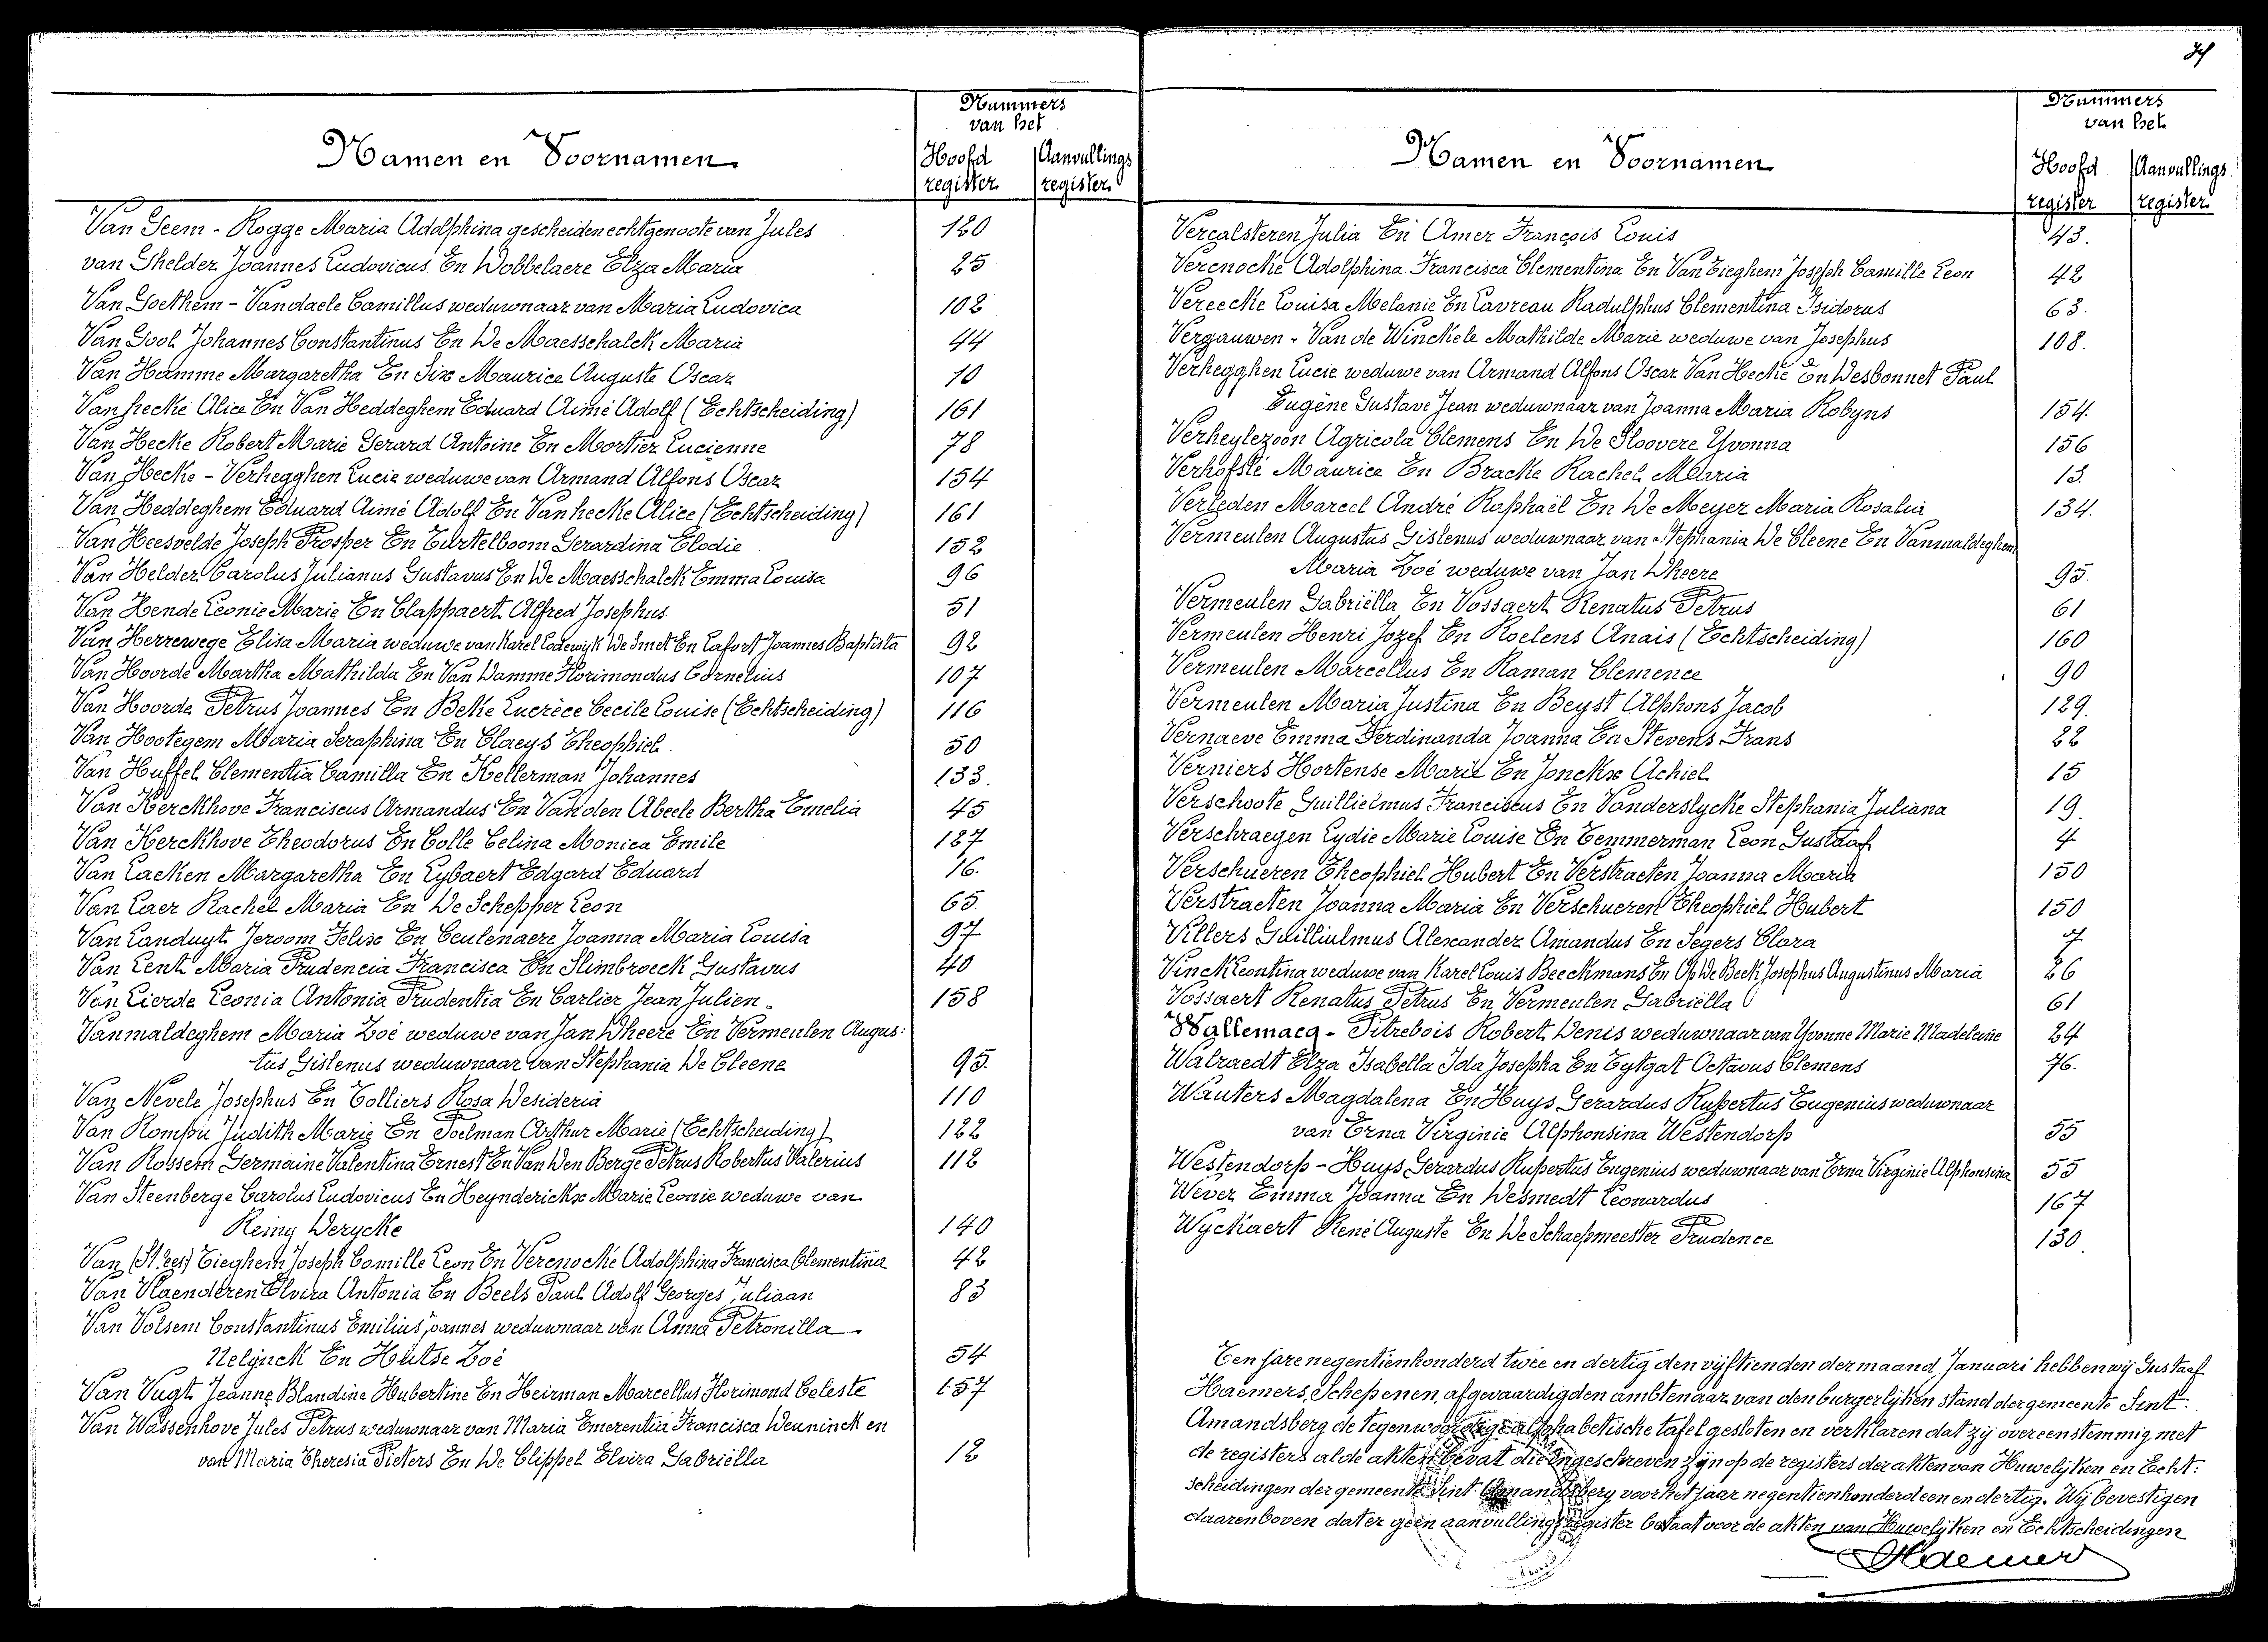 Nummers
van het
Namen en Voornamen
Hoofd register
Aanvullings register
Van Geem - Rogge Maria Adolphina gescheiden echtgenoote van Jules 120
van Ghelder Joannes Ludovicus En Dobbelaere Elza Maria 25
Van Goethem - Vandaele Camillus weduwnaar van Maria Ludovica 102
Van Gool Johannes Constantinus En De Maesschalck Maria 44
Van Hamme Margaretha En Six Maurice Auguste Oscar 10
Vanhecke Alice En Van Heddeghem Eduard Aimé Adolf (Echtscheiding) 161
Van Hecke Robert Marie Gerard Antoine En Mortier Lucienne 78
Van Hecke - Verhegghen Lucie weduwe van Armand Alfons Oscar 154
Van Heddeghem Eduard Aimé Adolf En Vanhecke Alice (Echtscheiding) 161
Van Heesvelde Joseph Prosper En Turtelboom Gerardina Elodie 152
Van Helder Carolus Julianus Gustavus En De Maesschalck Emma Louisa 96
Van Hende Leonie Marie En Clappaert Alfred Josephus 51
Van Herrewege Elisa Maria weduwe van Karel Lodewijk De Smet En Lafort Joannes Baptista 92
Van Hoorde Martha Mathilda En Van Damme Florimondus Cornelius 107
Van Hoorde Petrus Joannes En Beke Lucrèce Cecile Louise (Echtscheiding) 116
Van Hootegem Maria Seraphina En Claeys Theophiel 50
Van Huffel Clementia Camilla En Kellerman Johannes 133.
Van Kerckhove Franciscus Armandus En Van den Abeele Bertha Emelia 45
Van Kerckhove Theodorus En Colle Celina Monica Emile 127
Van Laeken Margaretha En Lybaert Edgard Eduard 16.
Van Laer Rachel Maria En De Schepper Leon 65.
Van Landuyt Jeroom Felix En Ceulenaere Joanna Maria Louisa 97
Van Lent Maria Prudencia Francisca En Slimbroeck Gustavus 40
Van Lierde Leonia Antonia Prudentia En Carlier Jean Julien. 158
Vanmaldeghem Maria Zoé weduwe van Jan Dheere En Vermeulen Augus:
tus Gislenus weduwnaar van Stephania De Cleene 95.
Van Nevele Josephus En Colliers Rosa Desideria 110
Van Rompu Judith Marie En Poelman Arthur Marie (Echtscheiding) 122
Van Rossem Germaine Valentina Ernest En Van Den Berge Petrus Robertus Valerius 112
Van Steenberge Carolus Ludovicus En Heynderickx Marie Leonie weduwe van
Remy Derycke 140
Van Tieghem Joseph Camille Leon En Verenocke Adolphina Francisca Clementina 42
Van Vlaenderen Elvira Antonia En Beels Paul Adolf Georges Juliaan 83
Van Volsem Constantinus Emilius Joannes weduwnaar van Anna Petronilla
Nelijnck En Hutse Zoé 54
Van Vugt Jeanne Blandine Hubertine En Heirman Marcellus Florimond Celeste 157
Van Wassenhove Jules Petrus weduwnaar van Maria Emerentia Francisca Deuninck en
van Maria Theresia Pieters En De Clippel Elvira Gabriëlla 12
Nummers
van het
Namen en Voornamen
Hoofd register
Aanvullings register
Vercalsteren Julia En Amer François Louis 43.
Verenocke Adolphina Francisca Clementina En Van Tieghem Joseph Camille Leon 42
Vereecke Louisa Melanie En Lavreau Radulphus Clementina Isidorus 63.
Vergauwen - Van de Winckele Mathilde Marie weduwe van Josephus 108.
Verhegghen Lucie weduwe van Armand Alfons Oscar Van Hecke En Desbonnet Paul
Eugène Gustave Jean weduwnaar van Joanna Maria Robyns 154.
Verheylezoon Agricola Clemens En De Sloovere Yvonna 156
Verhofsté Maurice En Bracke Rachel Maria 13.
Verleden Marcel André Raphaël En De Meyer Maria Rosalia 134.
Vermeulen Augustus Gislenus weduwnaar van Stephania De Cleene En Vanmaldeghem
Maria Zoé weduwe van Jan Dheere 95.
Vermeulen Gabriëlla En Vossaert Renatus Petrus 61
Vermeulen Henri Jozef En Roelens Anais (Echtscheiding) 160
Vermeulen Marcellus En Raman Clemence 90
Vermeulen Maria Justina En Beyst Alphons Jacob 129.
Vernaeve Emma Ferdinanda Joanna En Stevens Frans 22
Verniers Hortense Marie En Jonckx Achiel 15
Verschoote Guillielmus Franciscus En Vanderslycke Stephania Juliana 19.
Verschraegen Lydie Marie Louise En Temmerman Leon Gustaaf 4
Verschueren Theophiel Hubert En Verstraeten Joanna Maria 150
Verstraeten Joanna Maria En Verschueren Theophiel Hubert 150
Villers Guillielmus Alexander Amandus En Segers Clara 7
Vinck Leontina weduwe van Karel Louis Beeckmans En Op De Beek Josephus Augustinus Maria 26
Vossaert Renatus Petrus En Vermeulen Gabriëlla 61
Wallemacq - Pitrebois Robert Denis weduwnaar van Yvonne Marie Madeleine 24
Walraedt Elza Isabella Ida Josepha En Eytgat Octavus Clemens 76.
Wauters Magdalena En Huys Gerardus Rupertus Eugenius weduwnaar
van Erna Virginie Alphonsina Westendorp 55
Westendorp - Huys Gerardus Rupertus Eugenius weduwnaar van Erna Virginie Alphonsina 55
Wever Emma Joanna En Desmedt Leonardus 167
Wyckaert René Auguste En De Schaepmeester Prudence 130.
Ten jare negentienhonderd twee en dertig den vijftienden der maand Januari hebben wij Gustaaf
Haemers, Schepenen, afgevaardigden ambtenaar van den burgerlijken stand der gemeente Sint-
Amandsberg de tegenwoordige alphabetische tafel gesloten en verklaren dat zij overeenstemmig met
de registers al de akten bevat die ingeschreven zijn op de registers der akten van Huwelijken en Echt:
scheidingen der gemeente Sint-Amandsberg voor het jaar negentienhonderd een en dertig. Wij bevestigen
daarenboven dat er geen aanvullingsregister bestaat voor de akten van Huwelijken en Echtscheidingen
Haemers